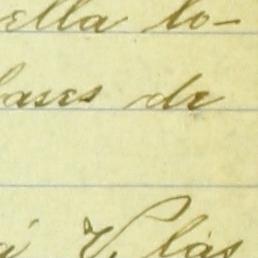 ella to-
bases de
á V. las